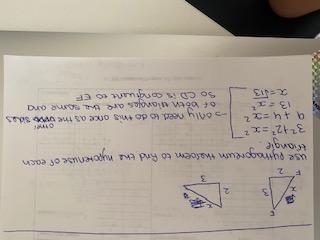 E
x
3
2
F
2
3
x
use pythagoreum theorem to find the hypotenuse of each
triangle.
3²+2²=x²
9+4=x²
13=x²
x=√13
→ Only need to do this once as the sides
of both triangles are the same and
so CD is congruent to EF